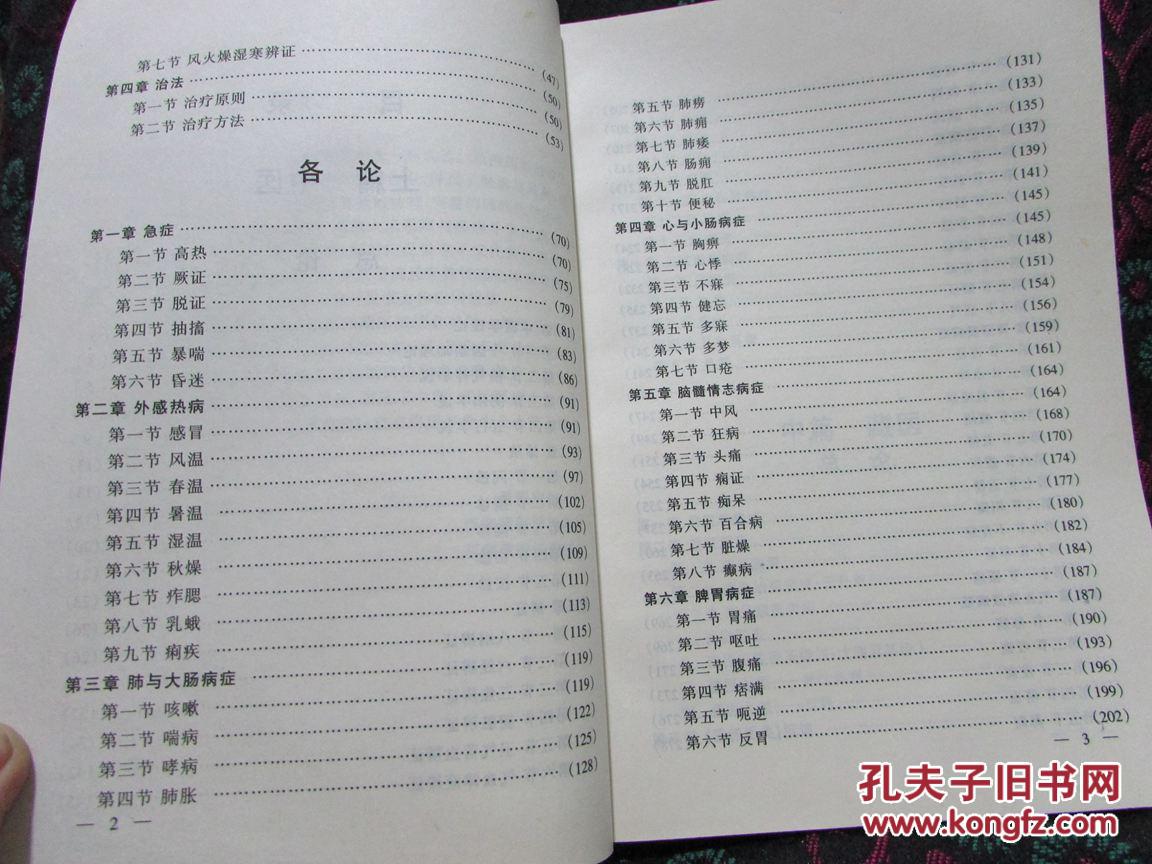 第七节 风火燥湿寒辨证 …… (47)
第四章 治法 …… (50)
第一节 治疗原则 …… (50)
第二节 治疗方法 …… (53)
各 论
第一章 急症 …… (70)
第一节 高热 …… (70)
第二节 厥证 …… (75)
第三节 脱证 …… (79)
第四节 抽搐 …… (81)
第五节 暴喘 …… (83)
第六节 昏迷 …… (86)
第二章 外感热病 …… (91)
第一节 感冒 …… (91)
第二节 风温 …… (93)
第三节 春温 …… (97)
第四节 暑温 …… (102)
第五节 湿温 …… (105)
第六节 秋燥 …… (109)
第七节 痄腮 …… (111)
第八节 乳蛾 …… (113)
第九节 痢疾 …… (115)
第三章 肺与大肠病症 …… (119)
第一节 咳嗽 …… (119)
第二节 喘病 …… (122)
第三节 哮病 …… (125)
第四节 肺胀 …… (128)
— 2 —
第五节 肺痨 …… (131)
第六节 肺痈 …… (133)
第七节 肺痿 …… (135)
第八节 肠痈 …… (137)
第九节 脱肛 …… (139)
第十节 便秘 …… (141)
第四章 心与小肠病症 …… (145)
第一节 胸痹 …… (145)
第二节 心悸 …… (148)
第三节 不寐 …… (151)
第四节 健忘 …… (154)
第五节 多寐 …… (156)
第六节 多梦 …… (159)
第七节 口疮 …… (161)
第五章 脑髓情志病症 …… (164)
第一节 中风 …… (164)
第二节 狂病 …… (168)
第三节 头痛 …… (170)
第四节 痫证 …… (174)
第五节 痴呆 …… (177)
第六节 百合病 …… (180)
第七节 脏燥 …… (182)
第八节 癫病 …… (184)
第六章 脾胃病症 …… (187)
第一节 胃痛 …… (187)
第二节 呕吐 …… (190)
第三节 腹痛 …… (193)
第四节 痞满 …… (196)
第五节 呃逆 …… (199)
第六节 反胃 …… (202)
— 3 —
孔夫子旧书网
www.kongfz.com